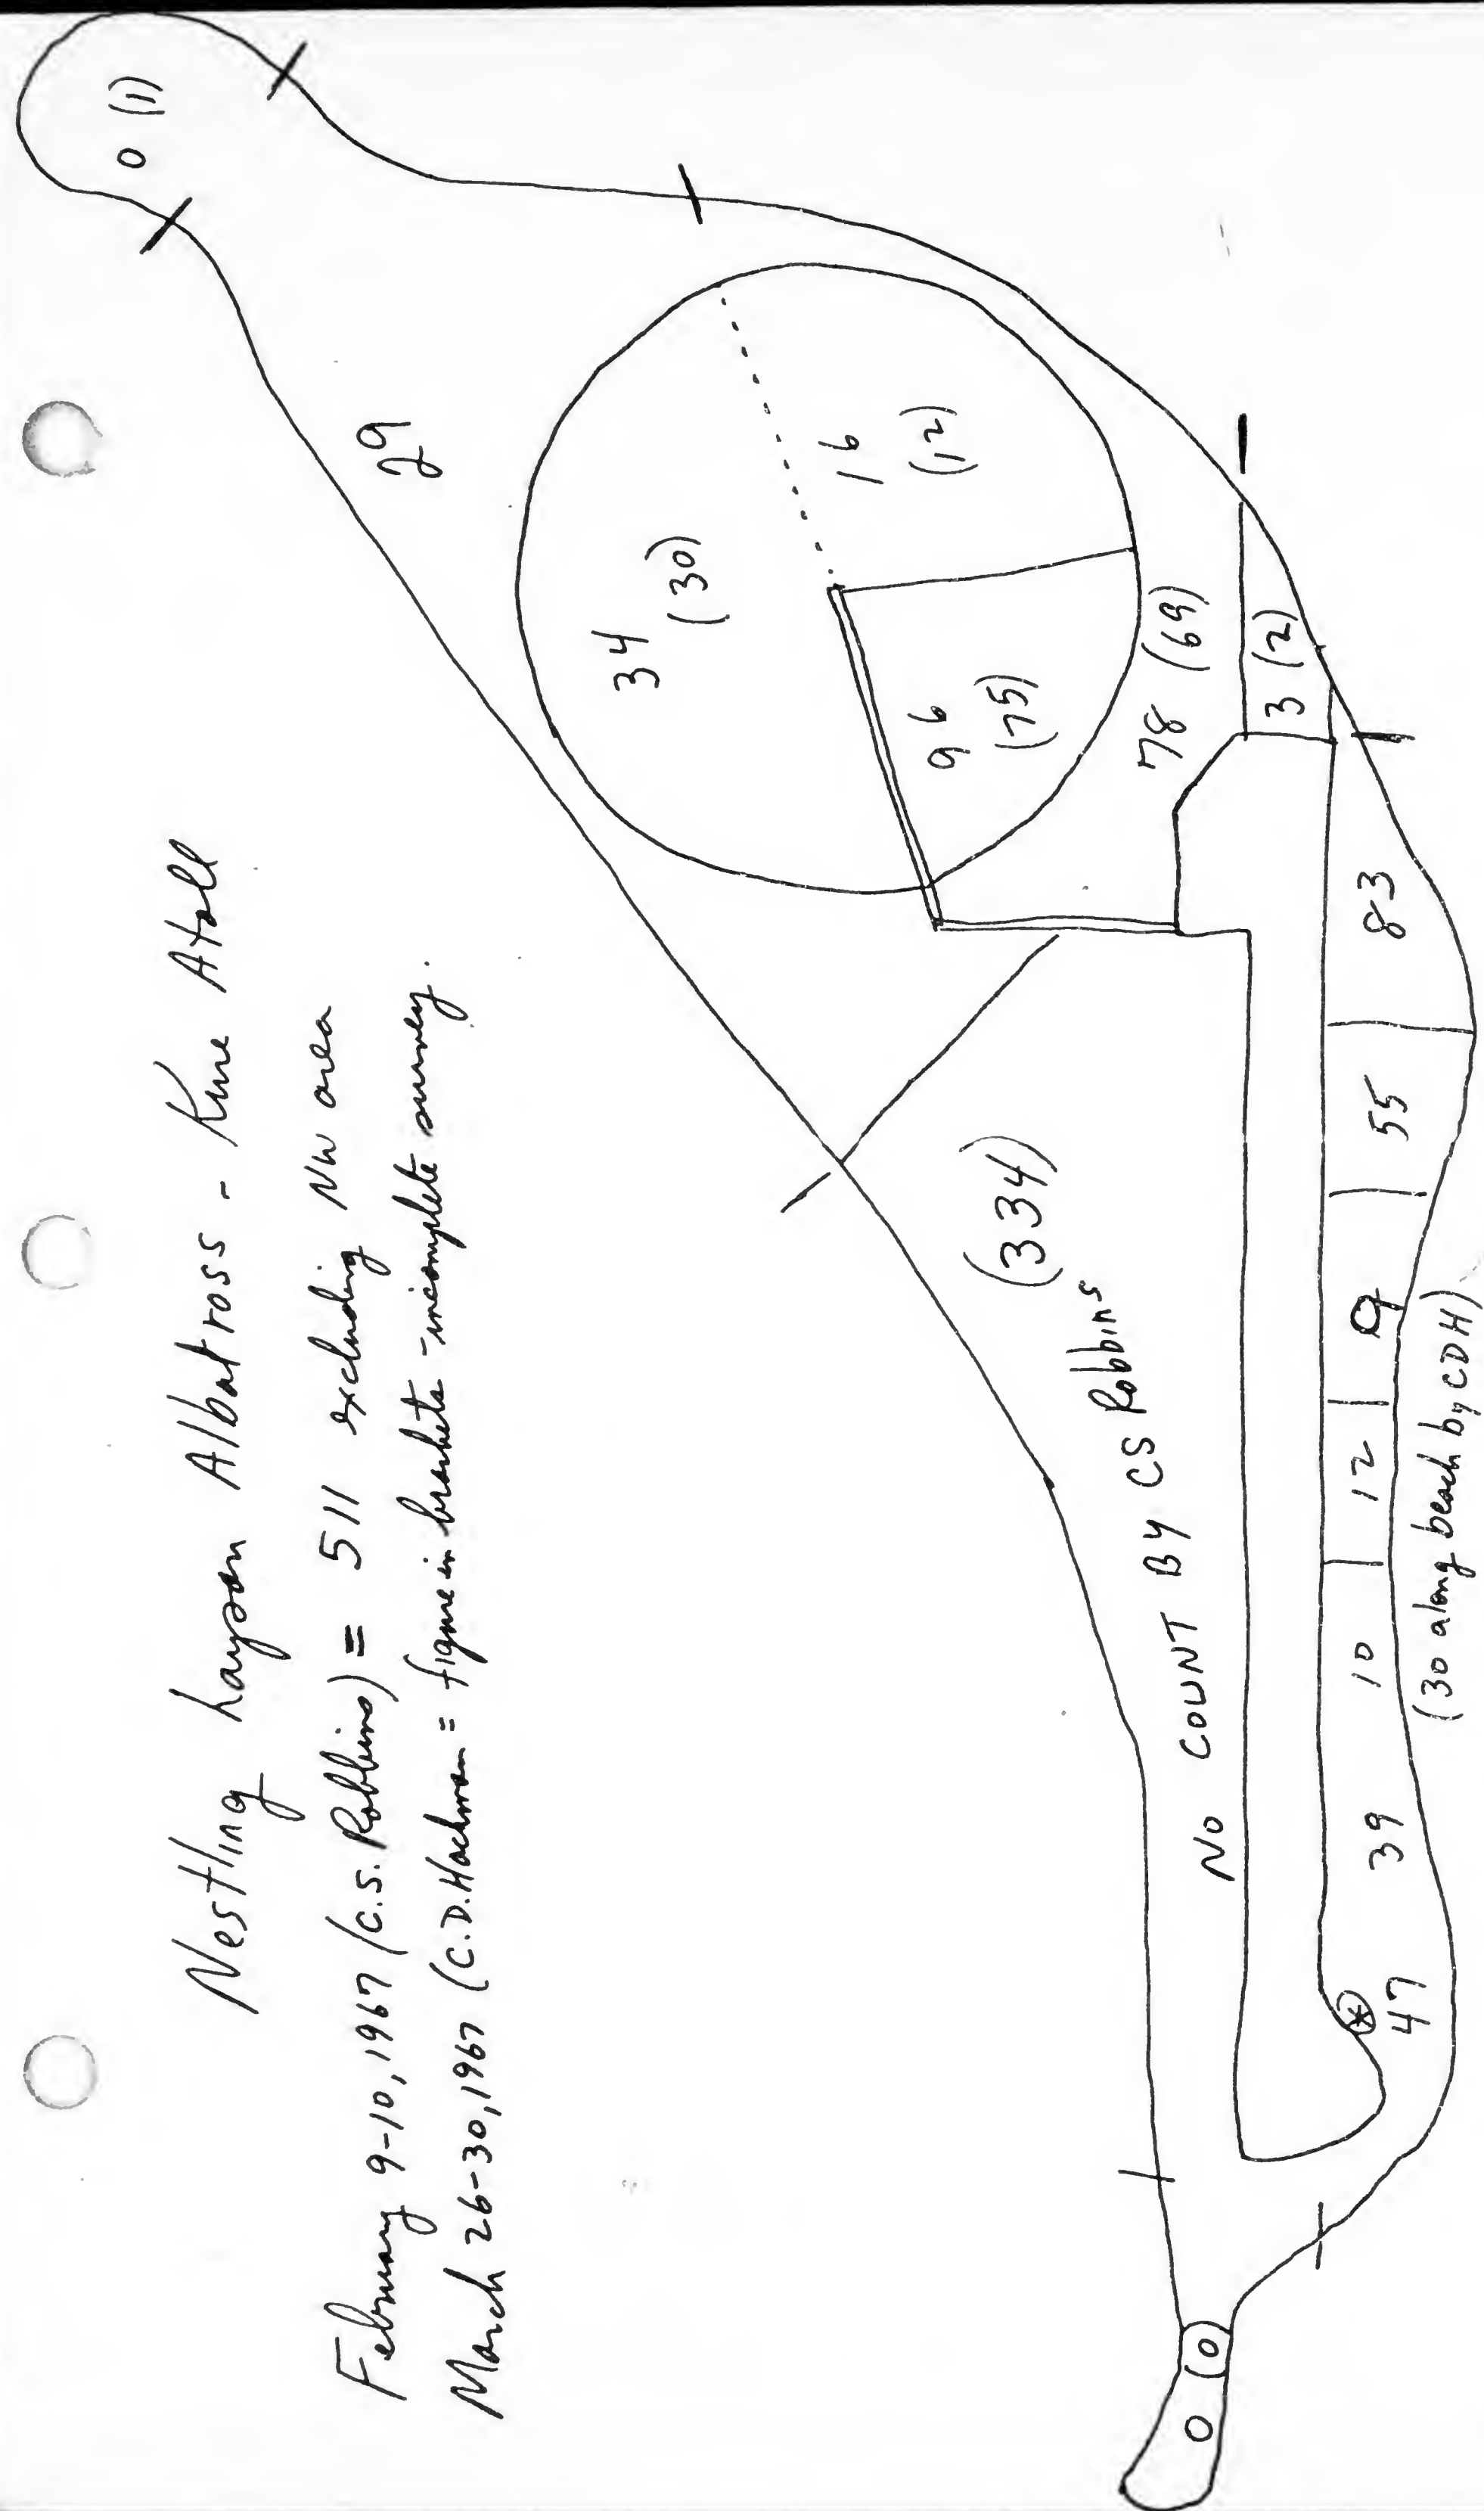 Nestling Laysan Albatross - Kure Atoll
February 9-10, 1967 (C.S. Robbins) = 511 excluding NW area
March 26-30, 1967 (C.D. Hackman = figure in brackets - incomplete survey.
0 (1)
29
34
(30)
16
(12)
96
(75)
78 (69)
3 (2)
(334)
NO COUNT BY CS Robbins
0 (0)
47
39
10
12
9
55
83
(30 along beach by CDH)